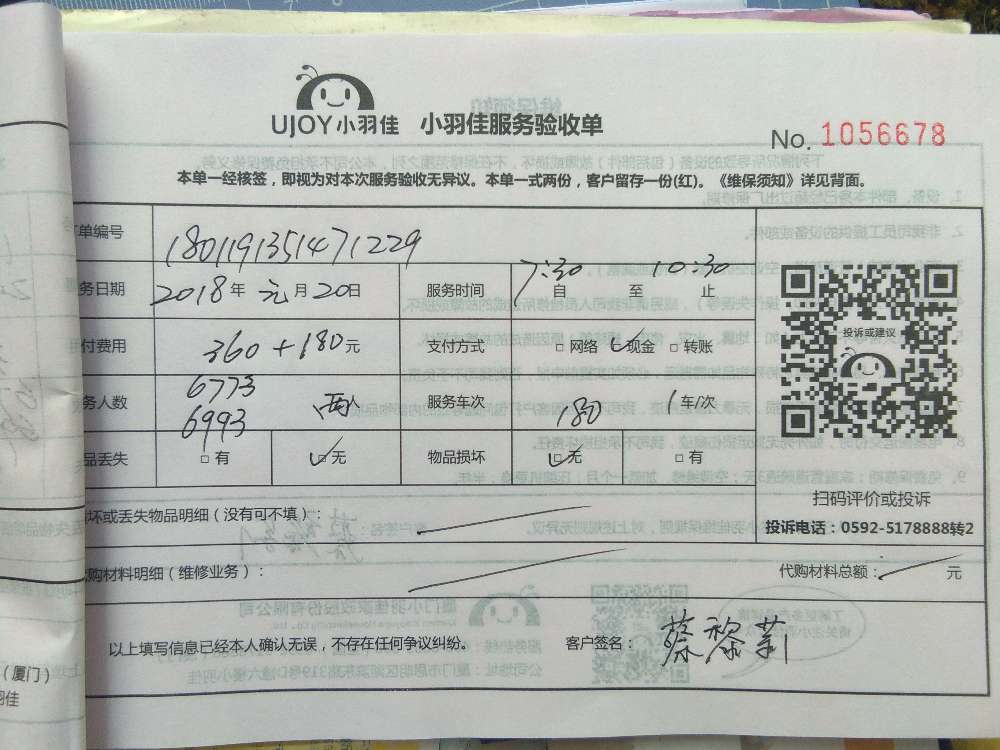 UJOY小羽佳 小羽佳服务验收单
No. 1056678
本单一经核签，即视为对本次服务验收无异议。本单一式两份，客户留存一份(红)。《维保须知》详见背面。
单编号 180119351471229
务日期 2018年元月20日 服务时间 7:30自 至 10:30止
付费用 360+180元 支付方式 □网络 ✓现金 □转账
务人数 6773 6993 两人 服务车次 180 1车/次
品丢失 □有 ✓无 物品损坏 ✓无 □有
投诉或建议
扫码评价或投诉
投诉电话：0592-5178888转2
坏或丢失物品明细（没有可不填）：
代购材料明细（维修业务）： 代购材料总额： 元
以上填写信息已经本人确认无误，不存在任何争议纠纷。 客户签名：蔡黎莉
（厦门）
羽佳